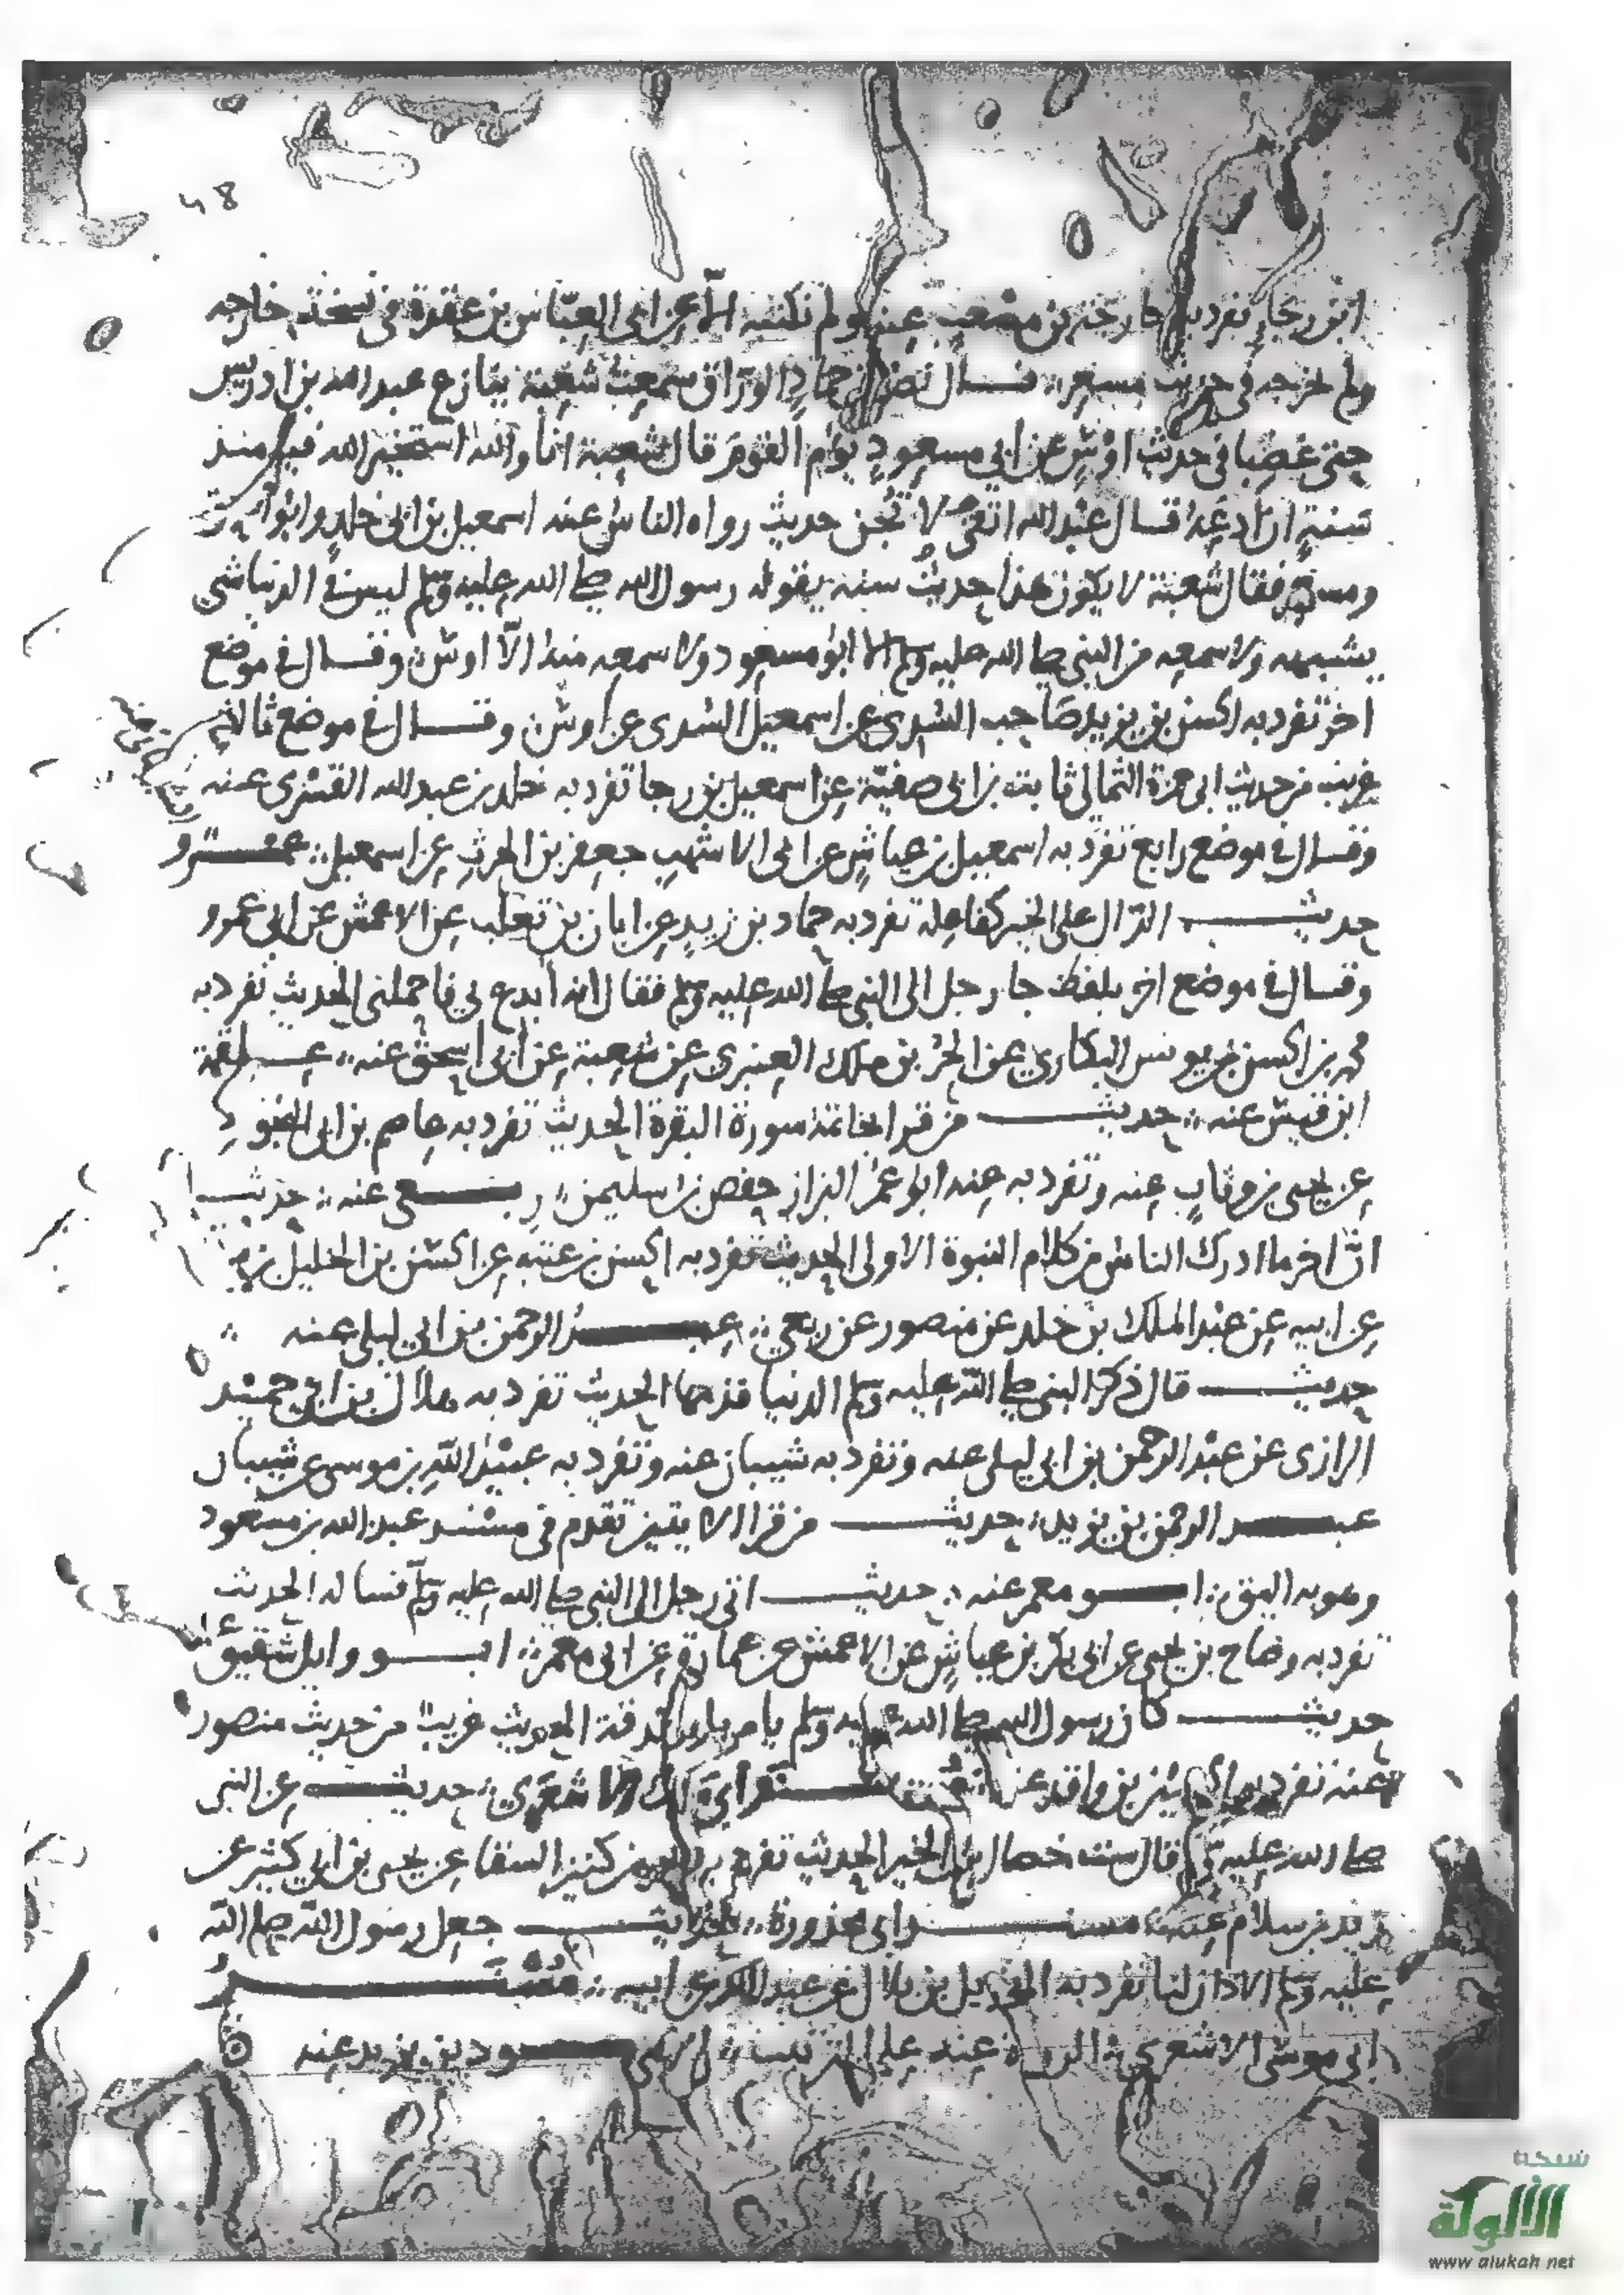 48
ابن رجاء تفرد به خارجة بن مصعب عنه ولم نكتبه الا عن ابى العباس بن عقدة فى نسخة خارجه
ولم يخرجه فى حديث مسعر قال نصر بن حماد الوراق سمعت شعبة ينازع عبد الله بن ادريس
حتى غضبا فى حديث اوس عن ابى مسعود يؤم القوم قال شعبة انا والله استخير الله فيه منذ
سنة قال عبد الله اتقى لا نحن حديث رواه الناس عنه اسمعيل بن ابى خلد و
ومسعر فقال شعبة لا يكون هذا حديث سنه يقوله رسول الله صلى الله عليه وسلم ليس فى الدنيا شى
يشبهه ولا سمعه من النبى صلى الله عليه وسلم الا ابو مسعود ولا سمعه منه الا اوس وقال فى موضع
اخر تفرد به الحسن بن يزيد صاحب السدى عن اسمعيل السدى عن اوس وقال فى موضع ثالث
غريب من حديث ابى حمزة الثمالى ثابت بن ابى صفية عن اسمعيل بن رجا تفرد به خلد بن عبد الله القسرى عنه
وقال فى موضع رابع تفرد به اسمعيل بن عياش عن ابى الاشهب جعفر بن الحرث عن اسمعيل عمرو
حديث الدال على الخير كفاعله تفرد به حماد بن زيد عن ابان بن تغلب عن الاعمش عن ابى عمرو
وقال فى موضع اخر بلفظ جا رجل الى النبى صلى الله عليه وسلم فقال انه ابدع بى فاحملنى الحديث تفرد به
محمد بن الحسن بن يونس البكارى عن الحر بن ملك العنبرى عن شعبة عن ابى اسحق عنه علقمة
ابن قيس عنه حديث من قرا خاتمة سورة البقرة الحديث تفرد به عاصم بن ابى النجود
عن يحيى بن وثاب عنه وتفرد به عنه ابو عمر البزاز حفص بن سليمن ربعى عنه حديث
ان اخر ما ادرك الناس من كلام النبوة الاولى الحديث تفرد به الحسن بن عتبه عن الحسن بن الخليل بن
عن ابيه عن عبد الملك بن خلد عن منصور عن ربعى عبد الرحمن بن ابى ليلى عنه
حديث قال ذكر النبى صلى الله عليه وسلم الدنيا فذمها الحديث تفرد به هلال بن ابى حميد
الرازى عن عبد الرحمن بن ابى ليلى عنه وتفرد به شيبان عنه وتفرد به عبيد الله بن موسى عن شيبان
عبد الرحمن بن يزيد حديث من قرا الايتين تقدم فى مسند عبد الله بن مسعود
وهو به اليق ابو معمر عنه حديث اتى رجل الى النبى صلى الله عليه وسلم فساله الحديث
تفرد به وضاح بن يحيى عن ابى بكر بن عياش عن الاعمش عن عمارة عن ابى معمر ابو وايل شقيق
حديث كان رسول الله صلى الله عليه وسلم يامر بالصدقة الحديث غريب من حديث منصور
عنه تفرد به بن واقد عن مسند ابى ملك الاشعرى حديث عن النبى
صلى الله عليه وسلم قال ست خصال من الخير الحديث تفرد به بحر بن كنيز السقا عن يحيى بن ابى كثير عن
زيد بن سلام عنه مسند ابى محذورة حديث جعل رسول الله صلى الله
عليه وسلم الاذان لنا تفرد به الهذيل بن بلال عن عبد الملك عن ابيه مسند
ابى موسى الاشعرى الرواة عنه على الترتيب الاسود بن يزيد عنه
شبكة
الألوكة
www alukah net